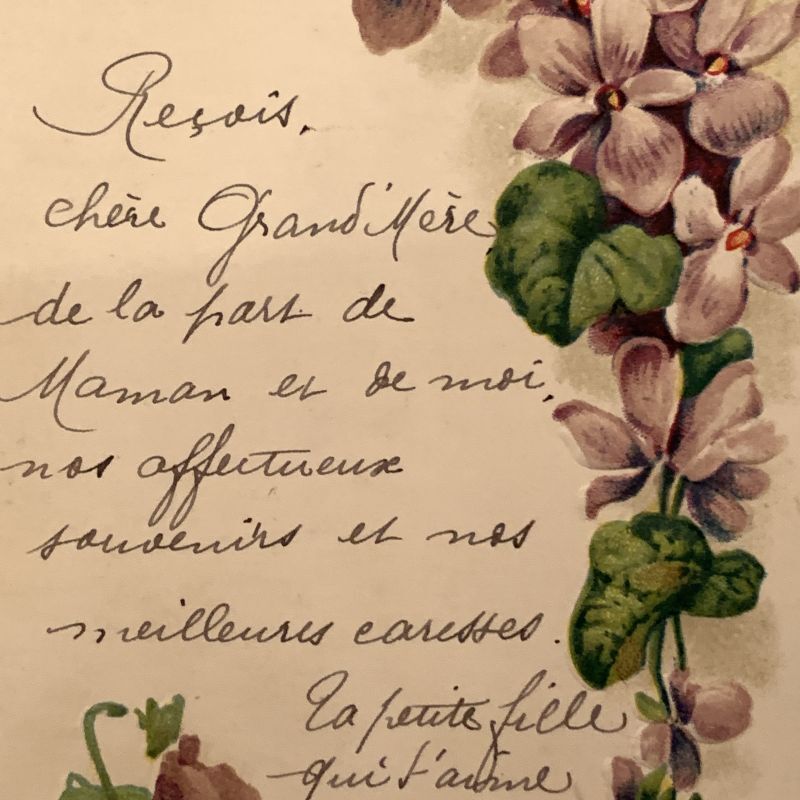 Reçois,
chère Grand'Mère
de la part de
Maman et de moi,
nos affectueux
souvenirs et nos
meilleures caresses.
Ta petite fille
qui t'aime